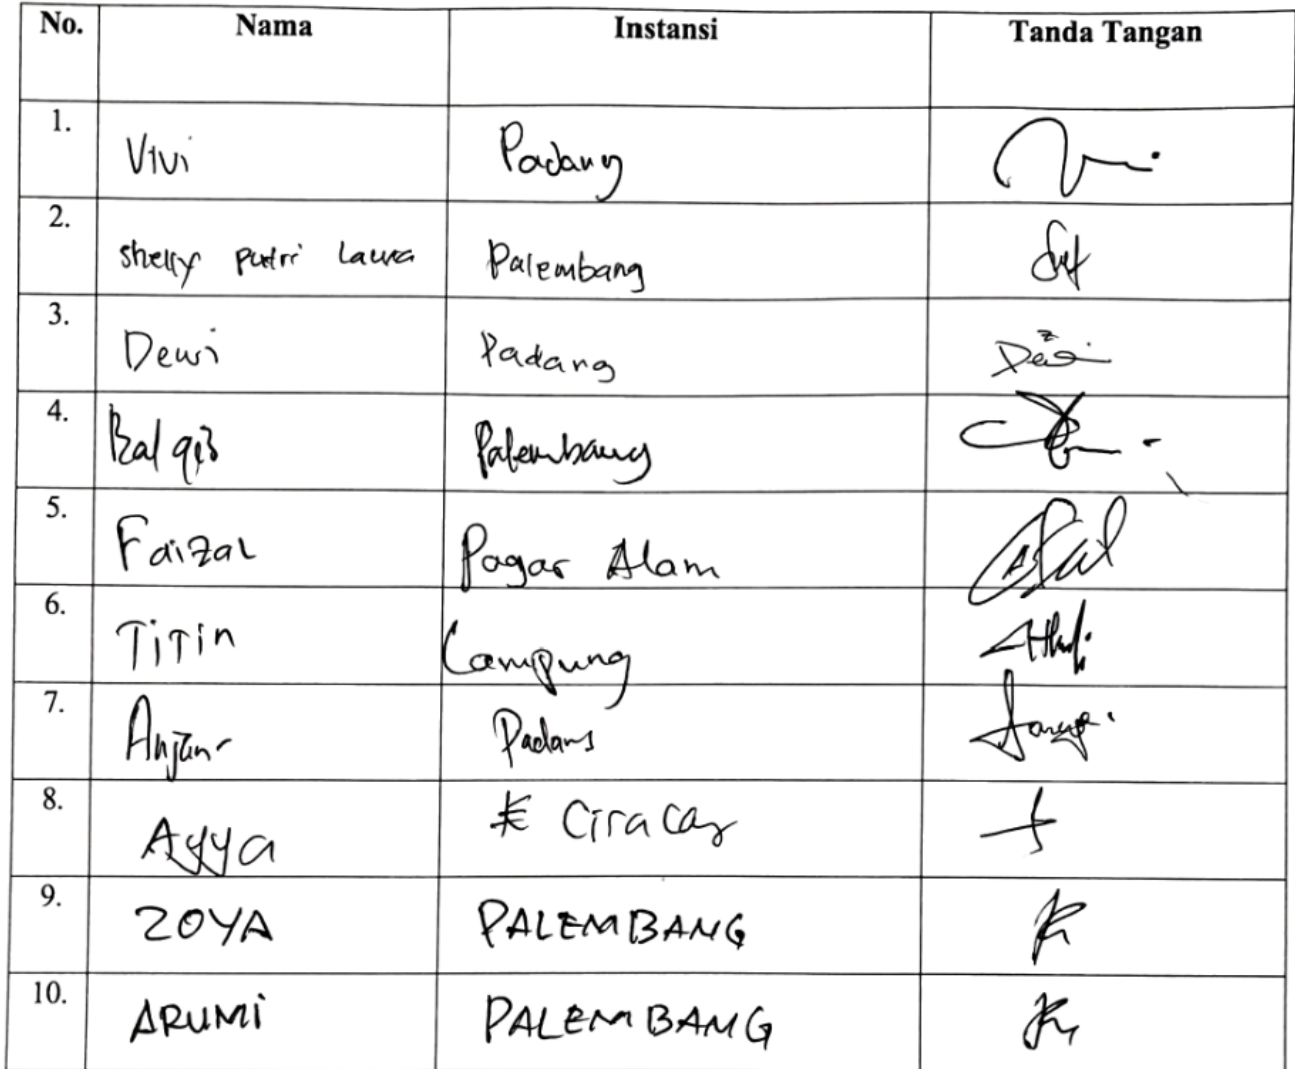 No. Nama Instansi Tanda Tangan
1. Vivi Padang
2. shelly putri Laura Palembang
3. Dewi Padang
4. Balqis Palembang
5. Faizal Pagar Alam
6. TiTin Lampung
7. Padang
8. Ayya Ciracas
9. ZOYA PALEMBANG
10. ARUMi PALEMBANG